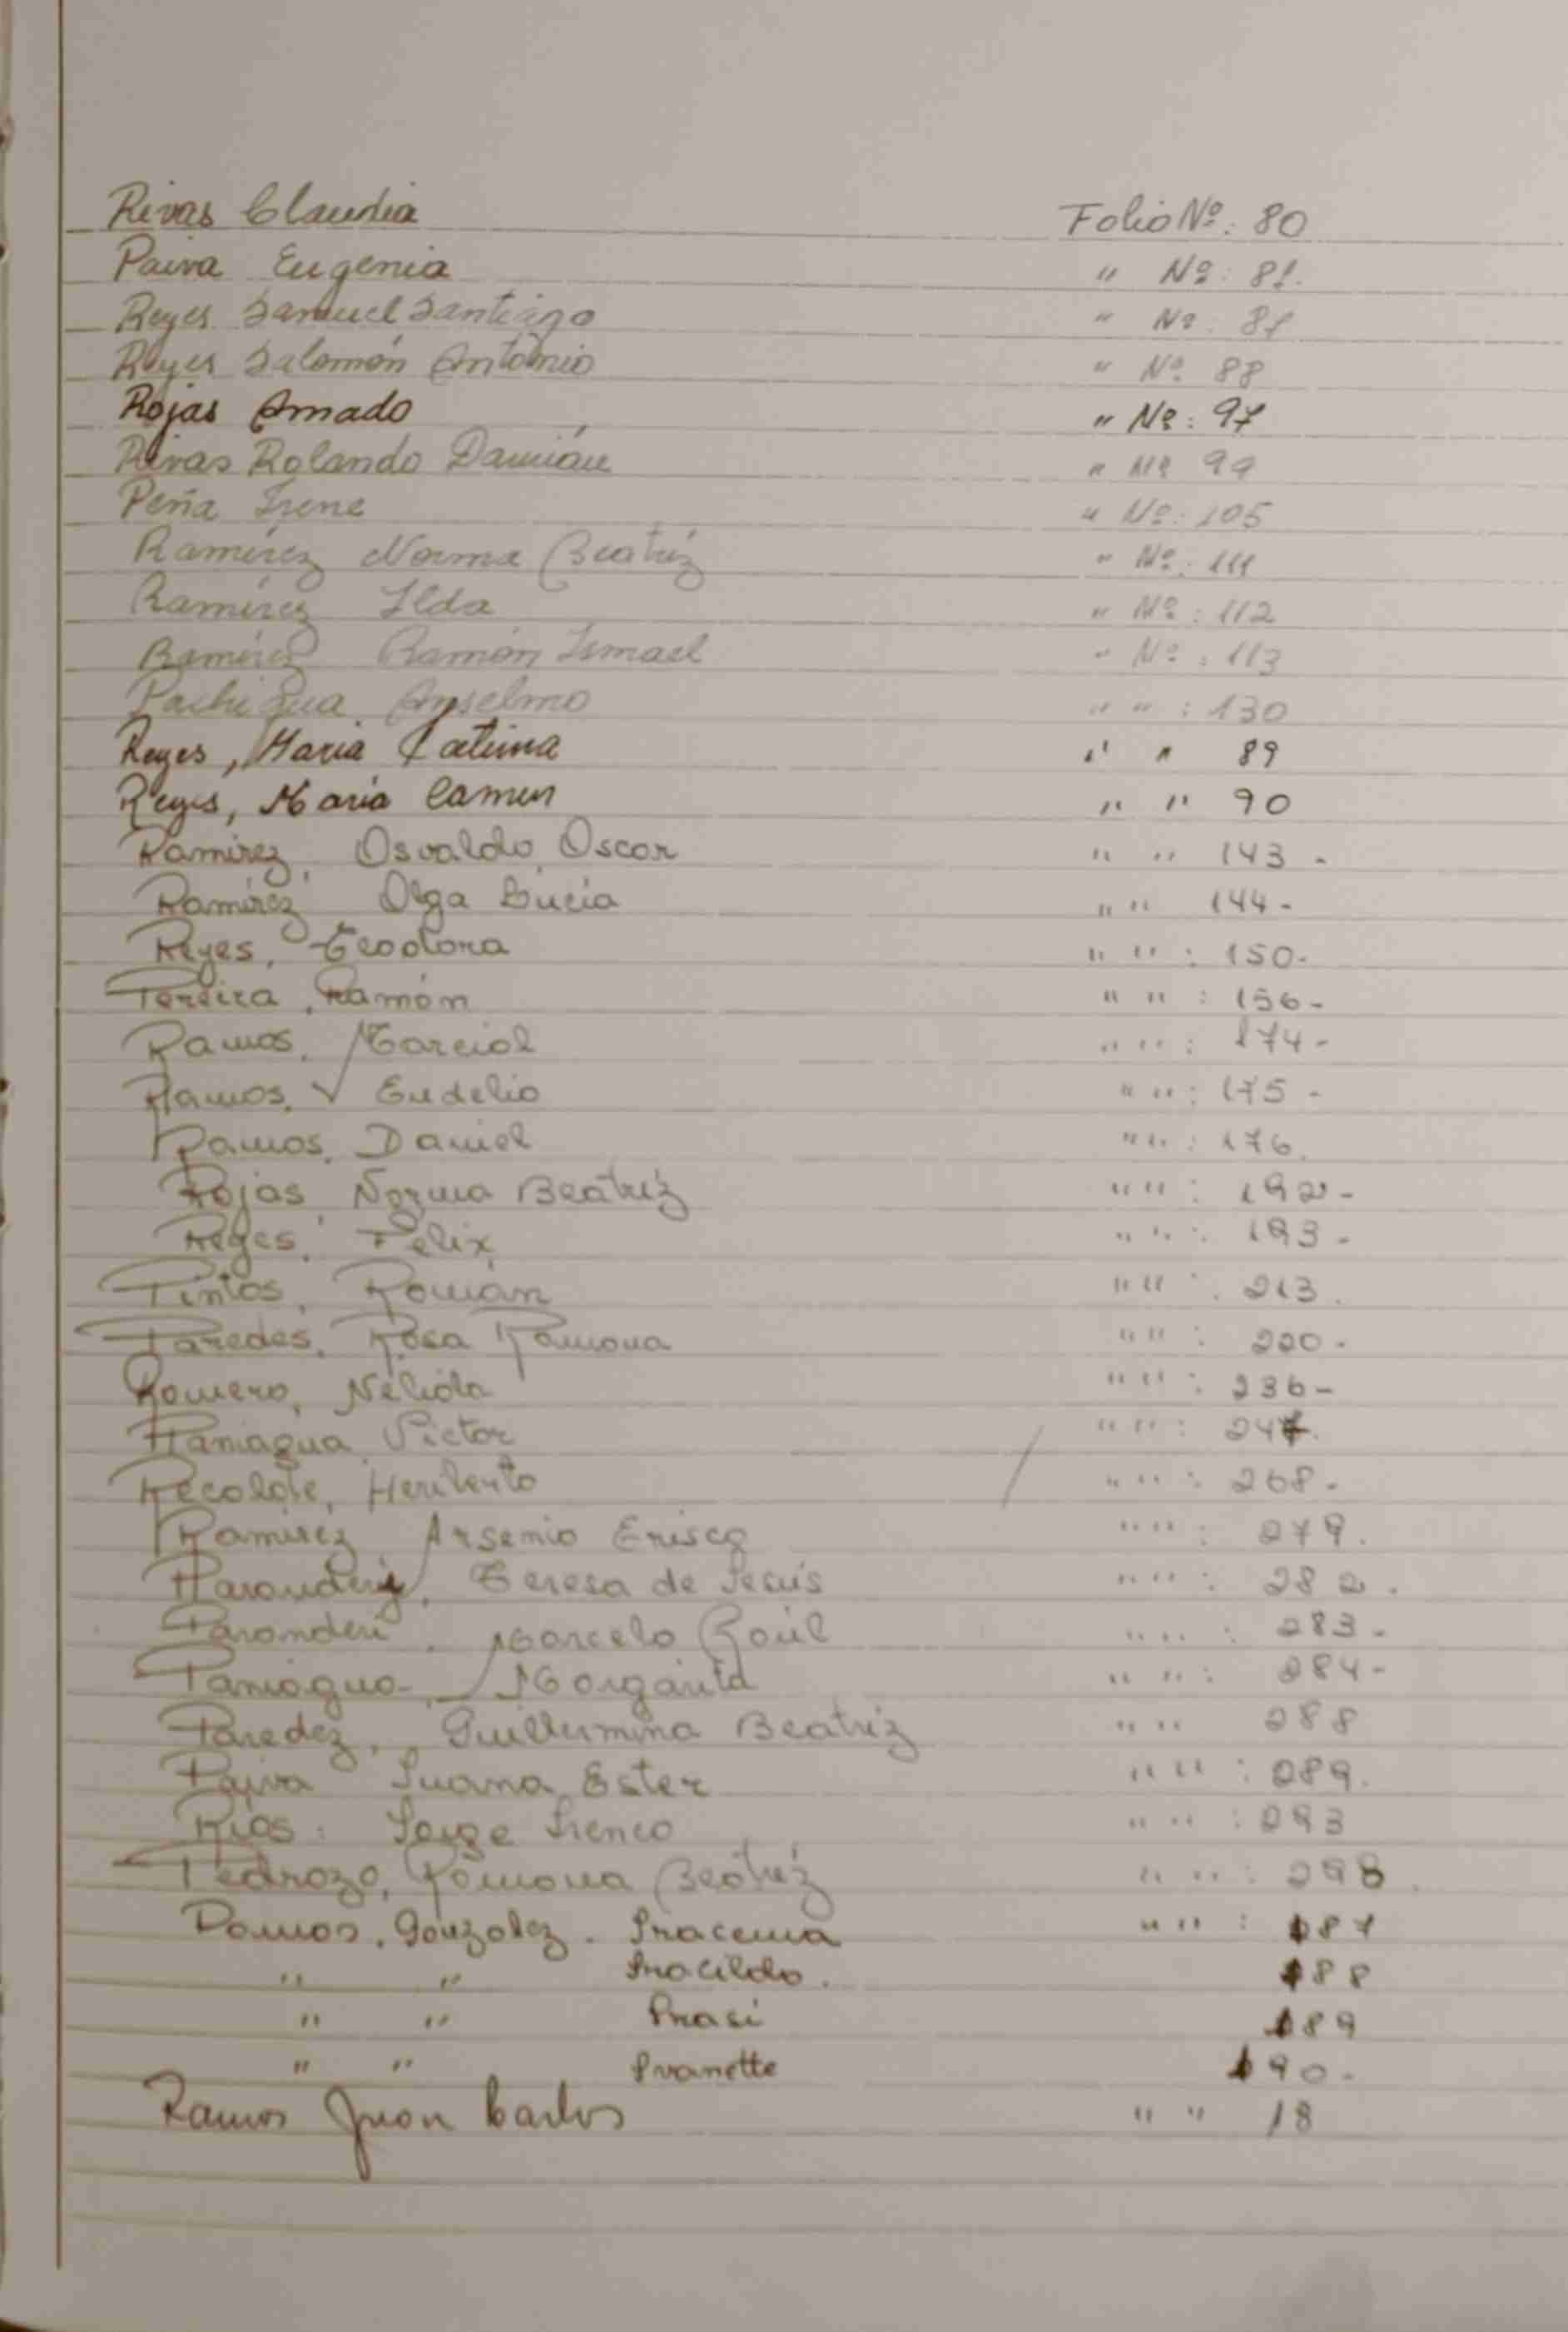 Rivas Claudia Folio Nº: 80
Paiva Eugenia " Nº: 81.
Reyes Samuel Santiago " Nº: 81
Reyes Salomón Antonio " Nº 88
Rojas Amado " Nº: 97
Rivas Rolando Damián " Nº 99
Peña Irene " Nº: 105
Ramírez Norma Beatríz " Nº: 111
Ramírez Ilda " Nº: 112
Ramírez Ramón Ismael " Nº: 113
Anselmo " " : 130
Reyes, Maria Fatima " " 89
Reyes, Maria Carmen " " 90
Ramírez, Osvaldo Oscar " " 143 -
Ramírez Olga Lucia " " 144 -
Reyes, Teodora " " : 150-
Pereira, Ramón " " : 156-
Ramos, Marcial " " : 174-
Ramos, Eudelio " " : 175 -
Ramos, Daniel " " : 176.
Rojas, Norma Beatríz " " : 192-
Reyes, Felix " " : 193 -
Pintos, Román " " : 213.
Paredes, Rosa Ramona " " : 220-
Romero, Nélida " " : 236-
Paniagua Victor " " : 247.
Recalde, Heriberto " " : 268-
Ramírez Arsenio " " : 279.
Teresa de Jesús " " : 282.
Paranderi, Marcelo Raúl " " : 283-
Paniagua, Margarita " " : 284-
Paredez, Guillermina Beatríz " " 288
Paiva Juana Ester " " : 289.
Ríos Jorge Ireneo " " : 293
Pedrozo, Ramona Beatríz " " : 298.
Ramos, Gonzalez. Iracema " " : 187
" " Iracildo. 188
" " Irasi 189
" " Ivanette 190-
Ramos Juan Carlos " " 18